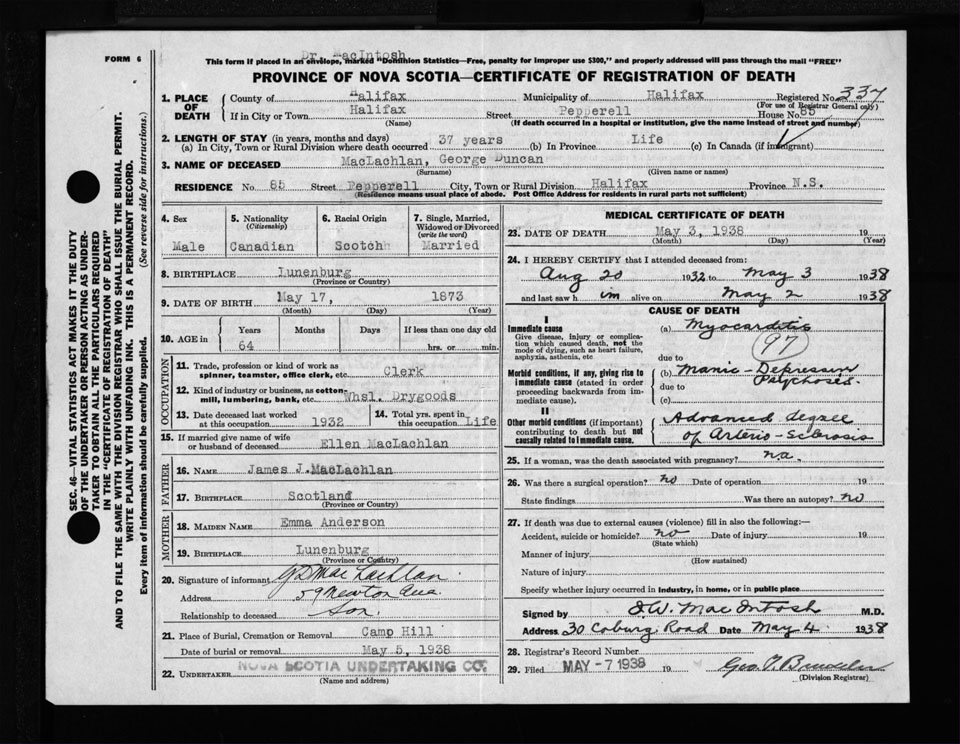 Dr. MacIntosh
FORM 6
This form if placed in an envelope, marked "Dominion Statistics—Free, penalty for improper use $300," and properly addressed will pass through the mail "FREE"
PROVINCE OF NOVA SCOTIA—CERTIFICATE OF REGISTRATION OF DEATH
1. PLACE OF DEATH County of Halifax Municipality of Halifax Registered No. 337
(For use of Registrar General only)
If in City or Town Halifax Street Pepperell House No. 85
(Name) (If death occurred in a hospital or institution, give the name instead of street and number)
2. LENGTH OF STAY (in years, months and days)
(a) In City, Town or Rural Division where death occurred 37 years (b) In Province Life (c) In Canada (if immigrant)
3. NAME OF DECEASED MacLachlan, George Duncan
(Surname) (Given name or names)
RESIDENCE No. 85 Street Pepperell City, Town or Rural Division Halifax Province N.S.
(Residence means usual place of abode. Post Office Address for residents in rural parts not sufficient)
4. Sex 5. Nationality (Citizenship) 6. Racial Origin 7. Single, Married, Widowed or Divorced (write the word)
Male Canadian Scotch Married
8. BIRTHPLACE Lunenburg
(Province or Country)
9. DATE OF BIRTH May 17, 1873
(Month) (Day) (Year)
10. AGE in Years Months Days If less than one day old
64 hrs. or min.
OCCUPATION
11. Trade, profession or kind of work as spinner, teamster, office clerk, etc. Clerk
12. Kind of industry or business, as cotton-mill, lumbering, bank, etc. Whsl. Drygoods
13. Date deceased last worked at this occupation 1932 14. Total yrs. spent in this occupation Life
15. If married give name of wife or husband of deceased Ellen MacLachlan
FATHER
16. NAME James J. MacLachlan
17. BIRTHPLACE Scotland
(Province or Country)
MOTHER
18. MAIDEN NAME Emma Anderson
19. BIRTHPLACE Lunenburg
(Province or Country)
20. Signature of informant G D MacLachlan
Address 59 Newton Ave.
Relationship to deceased Son.
21. Place of Burial, Cremation or Removal Camp Hill
Date of burial or removal May 5, 1938
22. UNDERTAKER NOVA SCOTIA UNDERTAKING CO.
(Name and address)
MEDICAL CERTIFICATE OF DEATH
23. DATE OF DEATH May 3, 1938 19
(Month) (Day) (Year)
24. I HEREBY CERTIFY that I attended deceased from:
Aug 20 1932 to May 3 1938
and last saw h im alive on May 2 1938
CAUSE OF DEATH
I
Immediate cause (a) Myocarditis
Give disease, injury or complication which caused death, not the mode of dying, such as heart failure, asphyxia, asthenia, etc.
97
due to
Morbid conditions, if any, giving rise to immediate cause (stated in order proceeding backwards from immediate cause). (b) Manic-Depression Psychoses.
due to
(c)
II
Other morbid conditions (if important) contributing to death but not causally related to immediate cause. Advanced degree of Arterio-sclerosis
25. If a woman, was the death associated with pregnancy? na.
26. Was there a surgical operation? no Date of operation 19
State findings Was there an autopsy? no
27. If death was due to external causes (violence) fill in also the following:—
Accident, suicide or homicide? no Date of injury 19
(State which)
Manner of injury
(How sustained)
Nature of injury
Specify whether injury occurred in industry, in home, or in public place
Signed by MacIntosh M.D.
Address 30 Coburg Road Date May 4 1938
28. Registrar's Record Number
29. Filed MAY -7 1938 19
(Division Registrar)
SEC. 46—VITAL STATISTICS ACT MAKES IT THE DUTY
OF THE UNDERTAKER OR PERSON ACTING AS UNDER-
TAKER TO OBTAIN ALL THE PARTICULARS REQUIRED
IN THE "CERTIFICATE OF REGISTRATION OF DEATH"
AND TO FILE THE SAME WITH THE DIVISION REGISTRAR WHO SHALL ISSUE THE BURIAL PERMIT.
WRITE PLAINLY WITH UNFADING INK. THIS IS A PERMANENT RECORD.
Every item of information should be carefully supplied. (See reverse side for instructions.)